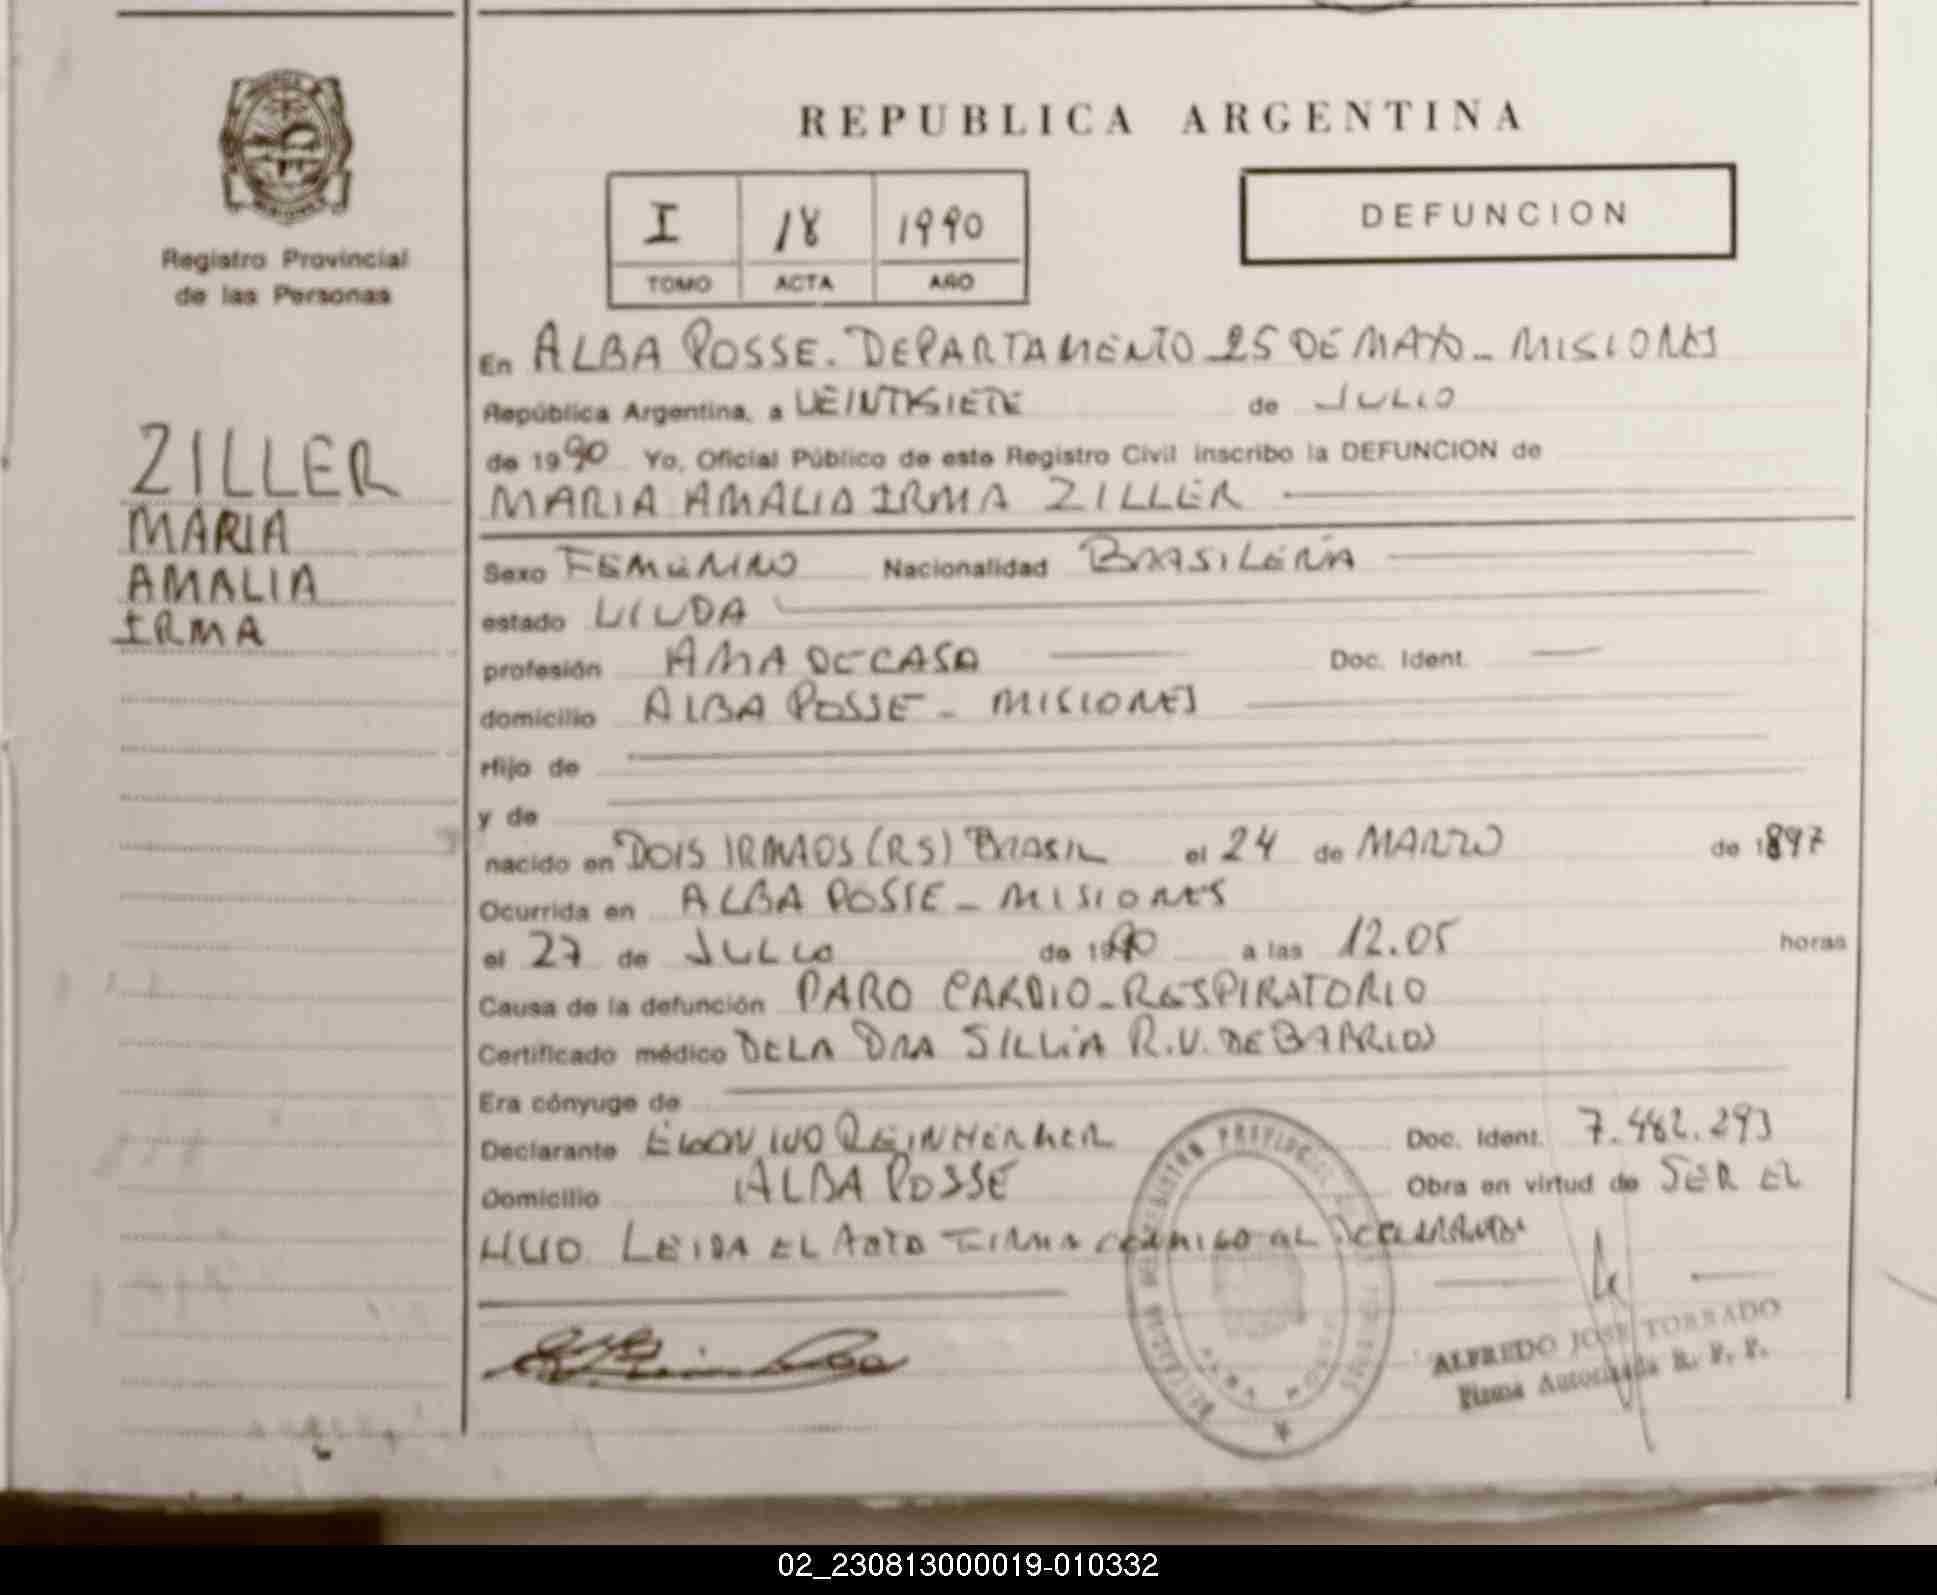 REPUBLICA ARGENTINA
I 18 1990
TOMO ACTA AÑO
DEFUNCION
Registro Provincial
de las Personas
ZILLER
MARIA
AMALIA
IRMA
En ALBA POSSE. DEPARTAMENTO 25 DE MAYO - MISIONES
República Argentina, a VEINTISIETE de JULIO
de 1990 Yo, Oficial Público de este Registro Civil inscribo la DEFUNCION de
MARIA AMALIA IRMA ZILLER
Sexo FEMENINO Nacionalidad BRASILEÑA
estado VIUDA
profesión AMA DE CASA Doc. Ident.
domicilio ALBA POSSE - MISIONES
Hijo de
y de
nacido en DOIS IRMAOS (RS) BRASIL el 24 de MARZO de 1897
Ocurrida en ALBA POSSE - MISIONES
el 27 de JULIO de 1990 a las 12.05 horas
Causa de la defunción PARO CARDIO-RESPIRATORIO
Certificado médico DE LA DRA SILVIA R.V. DE BARRIOS
Era cónyuge de
Declarante IVO Doc. Ident. 7.482.293
Domicilio ALBA POSSE Obra en virtud de SER EL
HIJO. LEIDA EL ACTA FIRMA CONMIGO EL DECLARANTE
ALFREDO JOSE TORRADO
Firma Autorizada R. P. P.
02_230813000019-010332